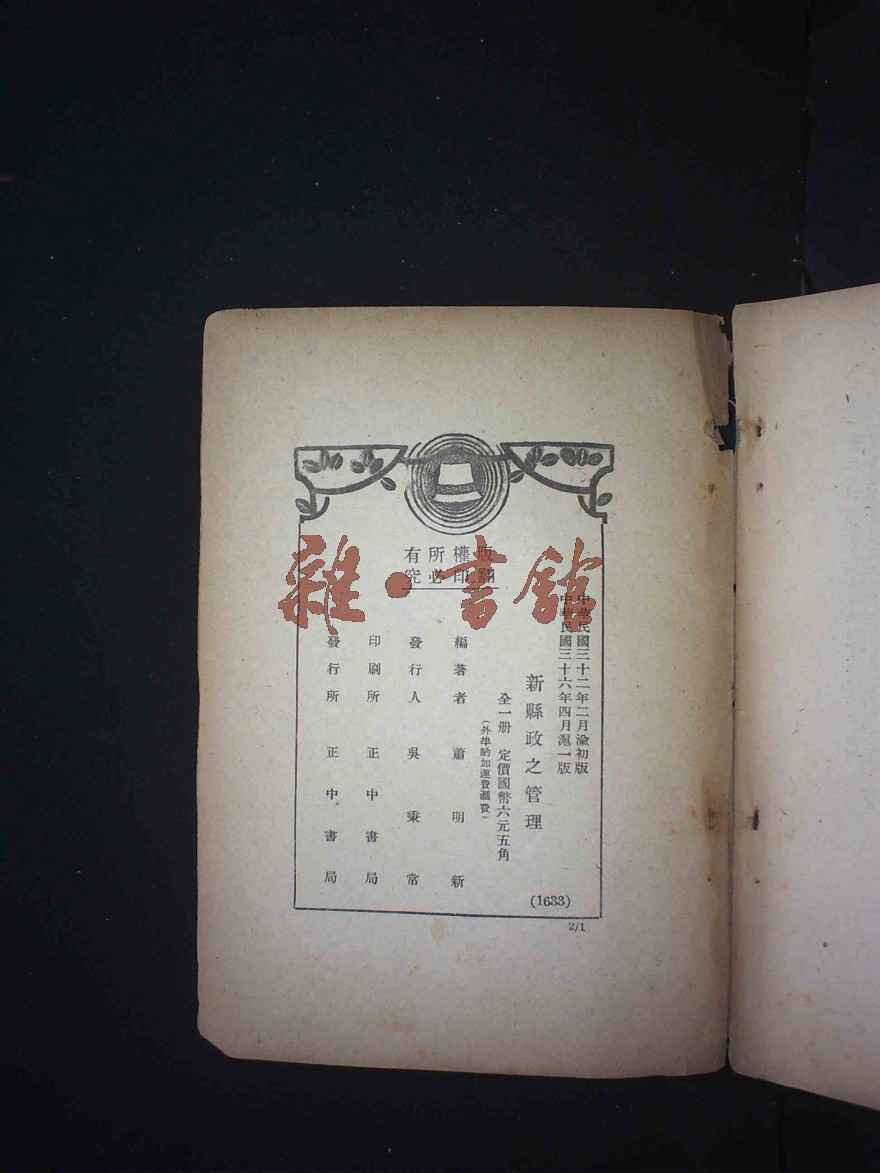 版權所有
翻印必究
中華民國三十二年二月渝初版
中華民國三十六年四月滬一版
新縣政之管理
全一册 定價國幣六元五角
(外埠酌加運費滙費)
編著者 蕭明新
發行人 吳秉常
印刷所 正中書局
發行所 正中書局
(1633)
2/1
雜·書館